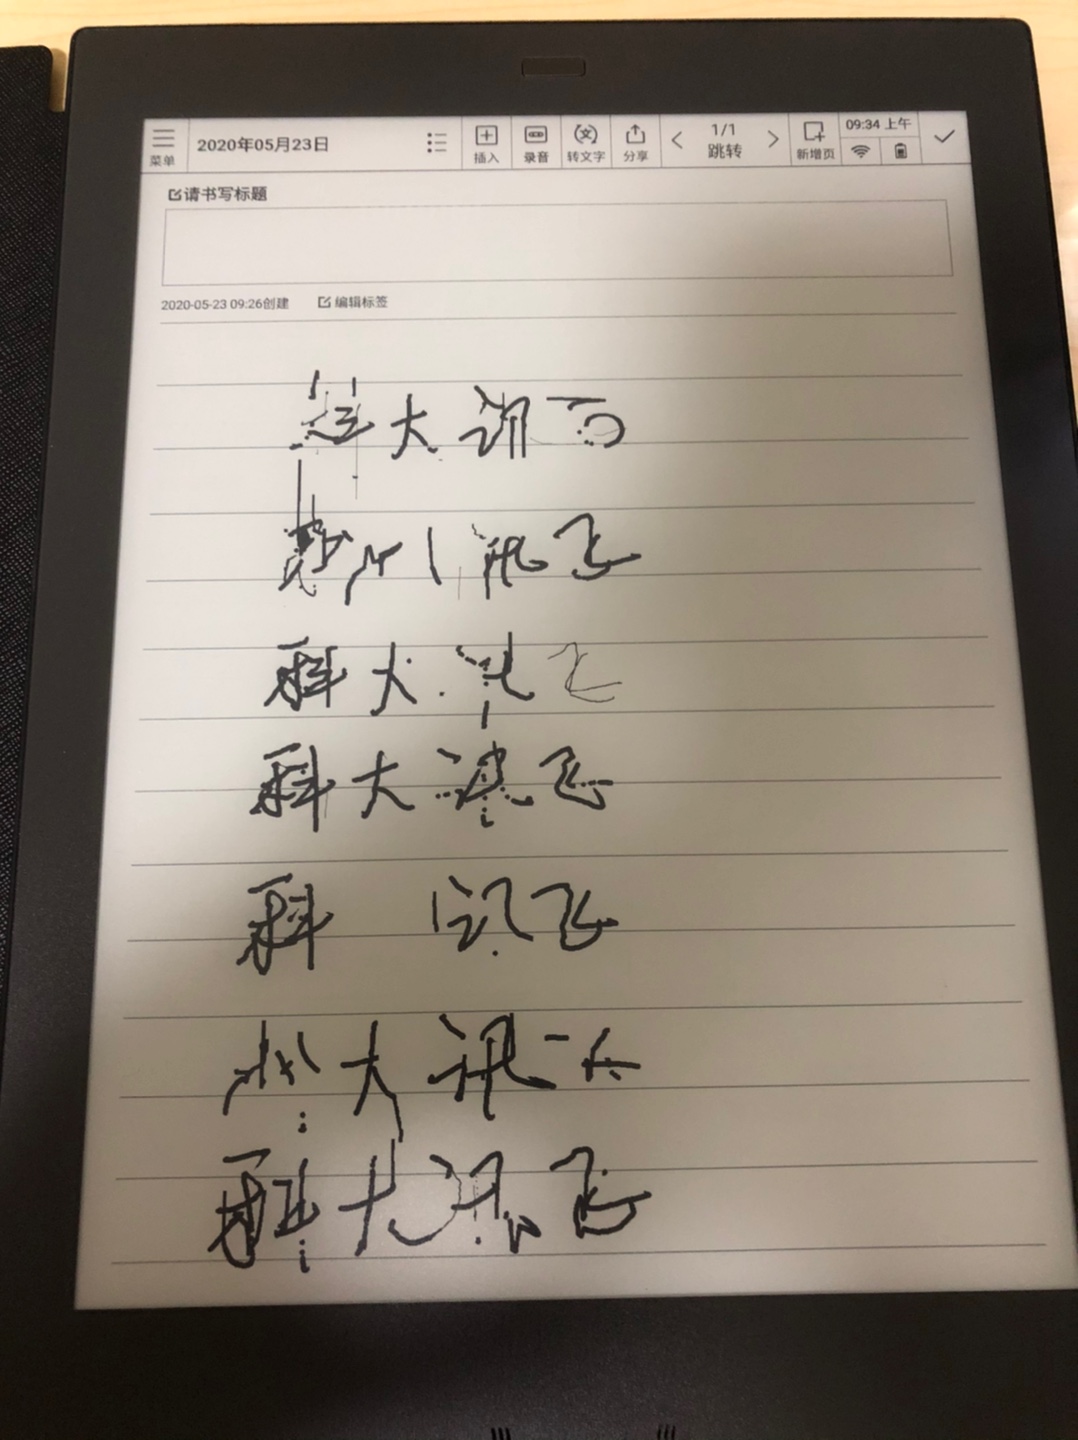 菜单 2020年05月23日 插入 录音 转文字 分享 < 1/1 跳转 > 新增页 09:34 上午
请书写标题
2020-05-23 09:26创建 编辑标签
大
飞
科大
科大讯飞
科 讯飞
大讯
科大讯飞